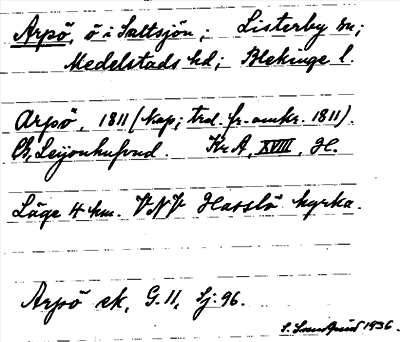 Arpö, ö i Saltsjön; Listerby sn;
Medelstads hd; Blekinge l.
Arpö, 1811 (kap; trol. fr. omkr. 1811).
Ch. Leijonhufvud. Kr A, XVIII, H.
Läge 4 km. VNV Hasslö kyrka.
Arpö ek, G. 11, Sj. 96.
1936.